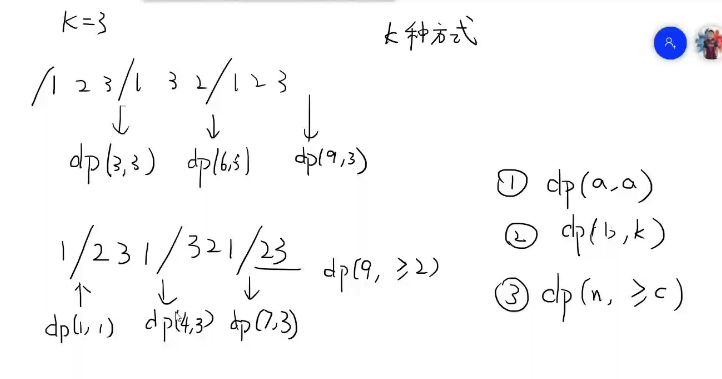 K=3
k种方式
/1 2 3/1 3 2/1 2 3
dp(3,3) dp(6,3) dp(9,3)
1/2 3 1/3 2 1/2 3
dp(9, ≥2)
dp(1,1) dp(4,3) dp(7,3)
① dp(a,a)
② dp(b,k)
③ dp(n, ≥c)